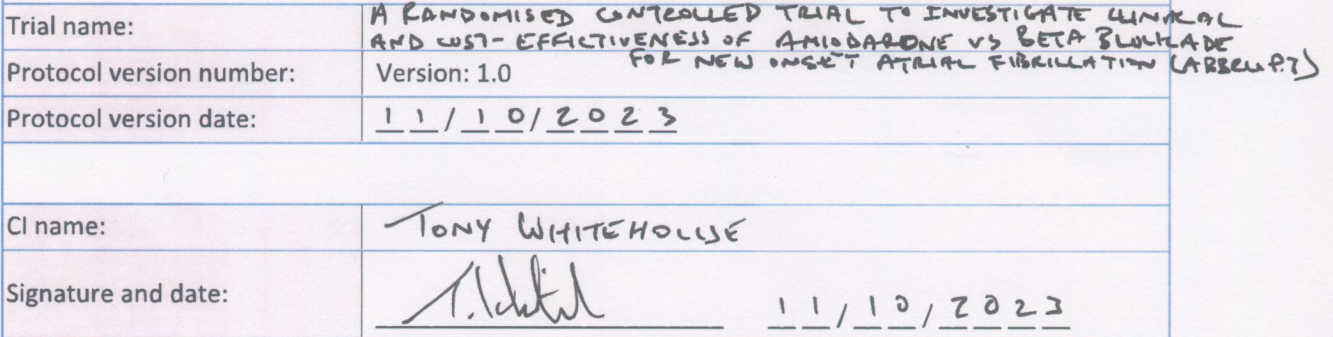 Trial name:
A RANDOMISED CONTROLLED TRIAL TO INVESTIGATE CLINICAL
AND COST-EFFECTIVENESS OF AMIODARONE VS BETA BLOCKADE
FOR NEW ONSET ATRIAL FIBRILLATION (ABBRUPT)
Protocol version number: Version: 1.0
Protocol version date: 11/10/2023
CI name: TONY WHITEHOUSE
Signature and date: 11/10/2023